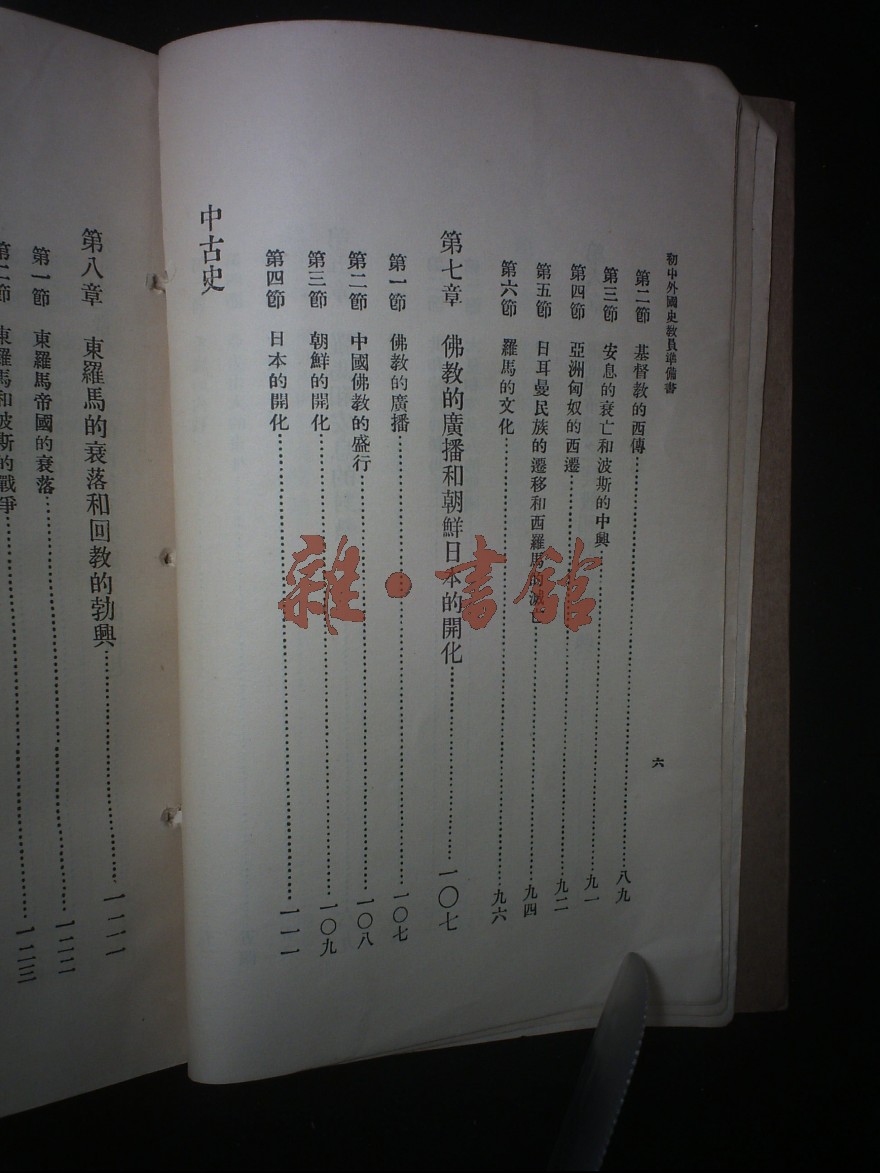 初中外國史教員準備書
六
第二節 基督教的西傳……八九
第三節 安息的衰亡和波斯的中興……九一
第四節 亞洲匈奴的西遷……九二
第五節 日耳曼民族的遷移和西羅馬的滅亡……九四
第六節 羅馬的文化……九六
第七章 佛教的廣播和朝鮮日本的開化……一〇七
第一節 佛教的廣播……一〇七
第二節 中國佛教的盛行……一〇八
第三節 朝鮮的開化……一〇九
第四節 日本的開化……一一一
中古史
第八章 東羅馬的衰落和回教的勃興……一二一
第一節 東羅馬帝國的衰落……一二二
第二節 東羅馬和波斯的戰爭……一二三
雜·書館